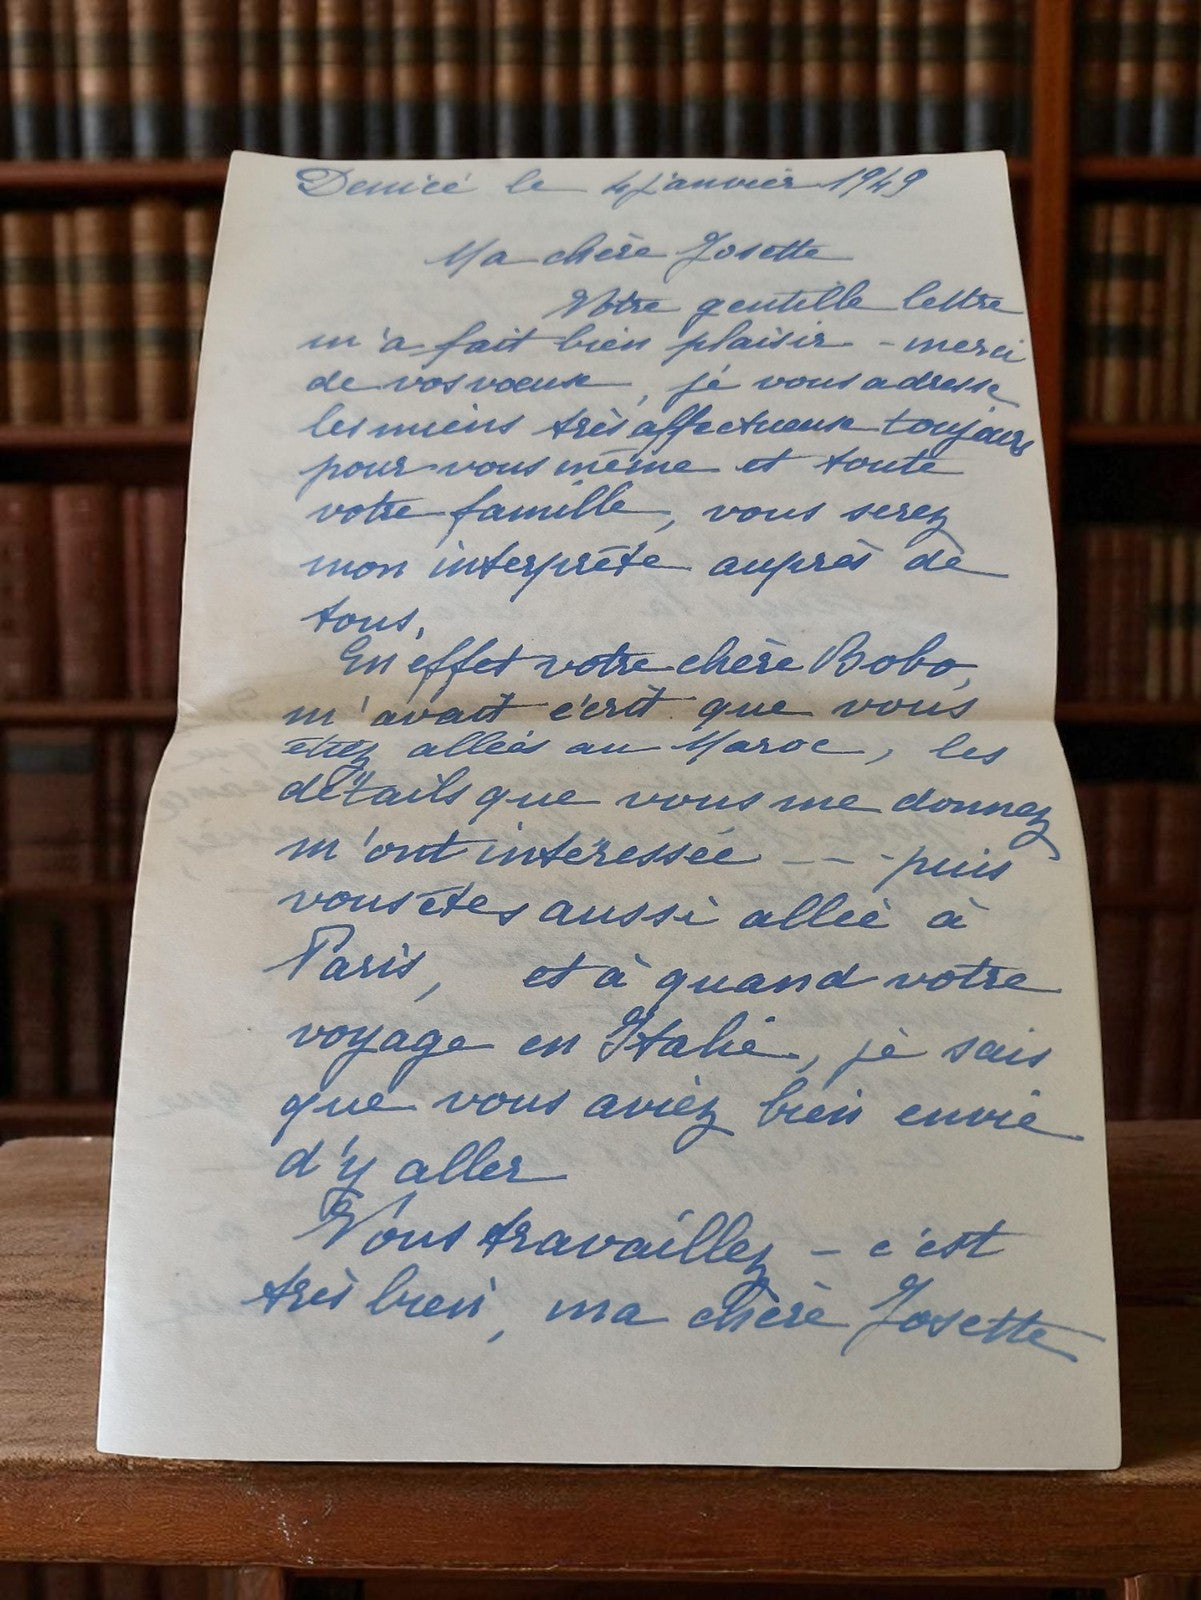 Denicé le 4 janvier 1949
Ma chère Josette
Votre gentille lettre
m'a fait bien plaisir - merci
de vos voeux, je vous adresse
les miens très affectueux toujours
pour vous même et toute
votre famille, vous serez
mon interprète auprès de
tous.
En effet votre chère Bobo,
m'avait écrit que vous
étiez allée au Maroc, les
détails que vous me donnez
m'ont intéressée - - - puis
vous êtes aussi allée à
Paris, et à quand votre
voyage en Italie, je sais
que vous aviez bien envie
d'y aller
Vous travaillez - c'est
très bien, ma chère Josette